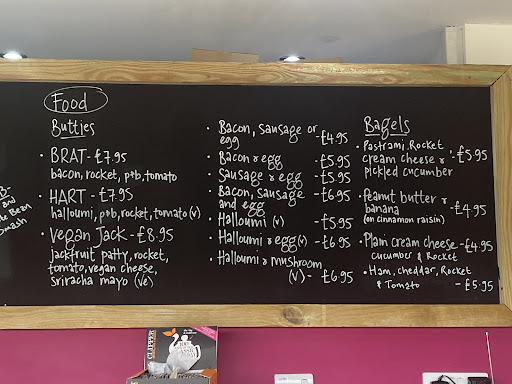 Food
Butties
• BRAT - £7.95
bacon, rocket, p+b, tomato
• HART - £7.95
halloumi, p+b, rocket, tomato (v)
• Vegan Jack - £8.95
jackfruit patty, rocket,
tomato, vegan cheese,
sriracha mayo (ve)
• Bacon, sausage or
egg - £4.95
• Bacon & egg - £5.95
• Sausage & egg - £5.95
• Bacon, Sausage - £6.95
and egg
• Halloumi (v) - £5.95
• Halloumi & egg (v) - £6.95
• Halloumi & mushroom
(v) - £6.95
Bagels
• Pastrami, Rocket
cream cheese & - £5.95
pickled cucumber
• Peanut butter &
banana - £4.95
(on cinnamon raisin)
• Plain cream cheese - £4.95
cucumber & Rocket
• Ham, cheddar, Rocket
& Tomato - £5.95
Bean
mash
CLIPPER